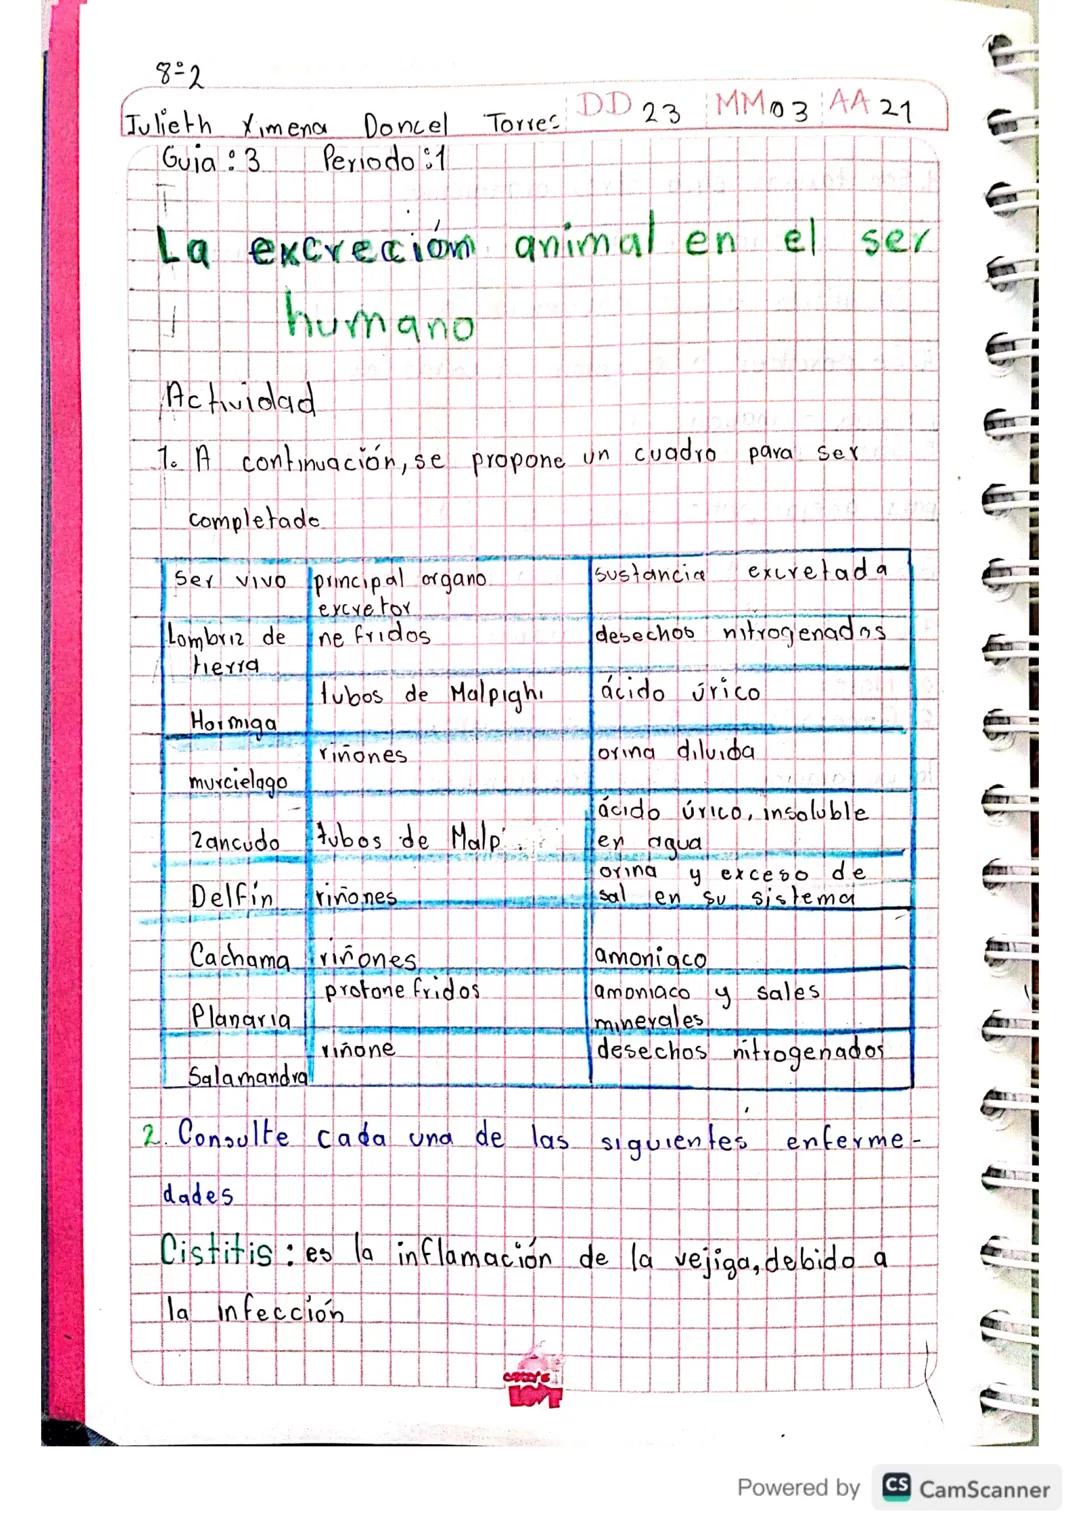 8º2
Julieth Ximena Doncel Torres DD 23 MM 03 AA 21
Guia : 3 Periodo : 1
La excreción animal en el ser
humano
Actividad
1. A continuación, se propone un cuadro para ser
completado
Ser vivo principal organo excretor sustancia excretada
Lombriz de tierra nefridos desechos nitrogenados
Hormiga tubos de Malpighi ácido úrico
murcielago riñones orina diluida
Zancudo tubos de Malp ácido úrico, insoluble en agua
Delfín riñones orina y exceso de sal en su sistema
Cachama riñones amoniaco
Planaria protonefridos amoniaco y sales minerales
Salamandra riñone desechos nitrogenados
2. Consulte cada una de las siguientes enferme-
dades
Cistitis : es la inflamación de la vejiga, debido a
la infección
LOVE
Powered by CS CamScanner